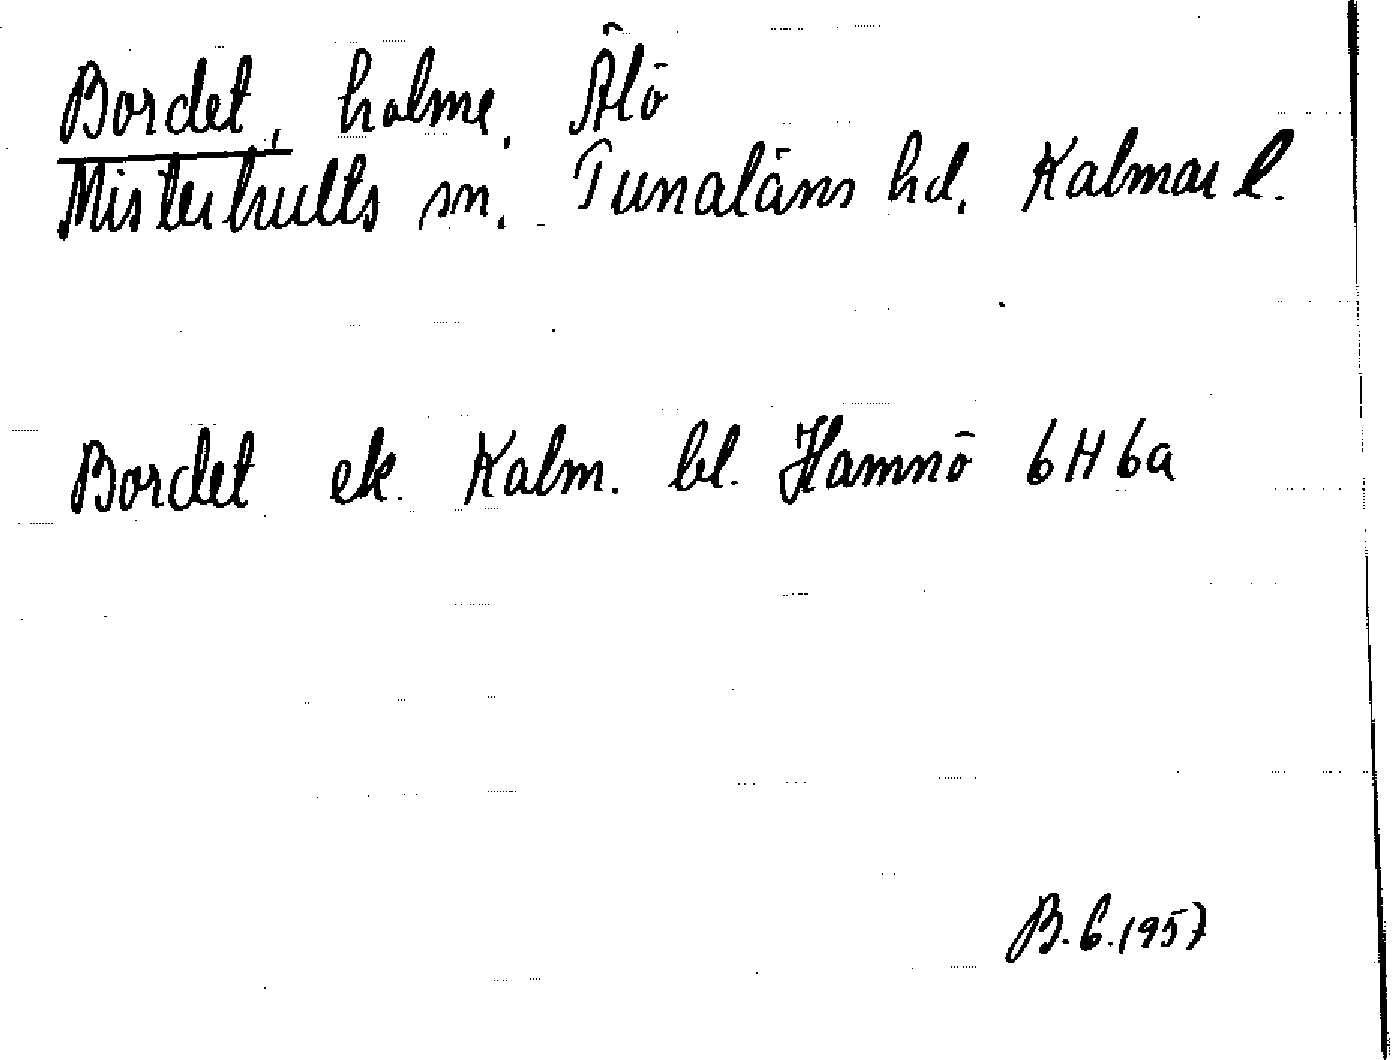 Bordet, holme, Älö
Misterhults sn. Tunaläns hd. Kalmar l.
Bordet ek. Kalm. bl. Hamnö 6H6a
B.G. 1957